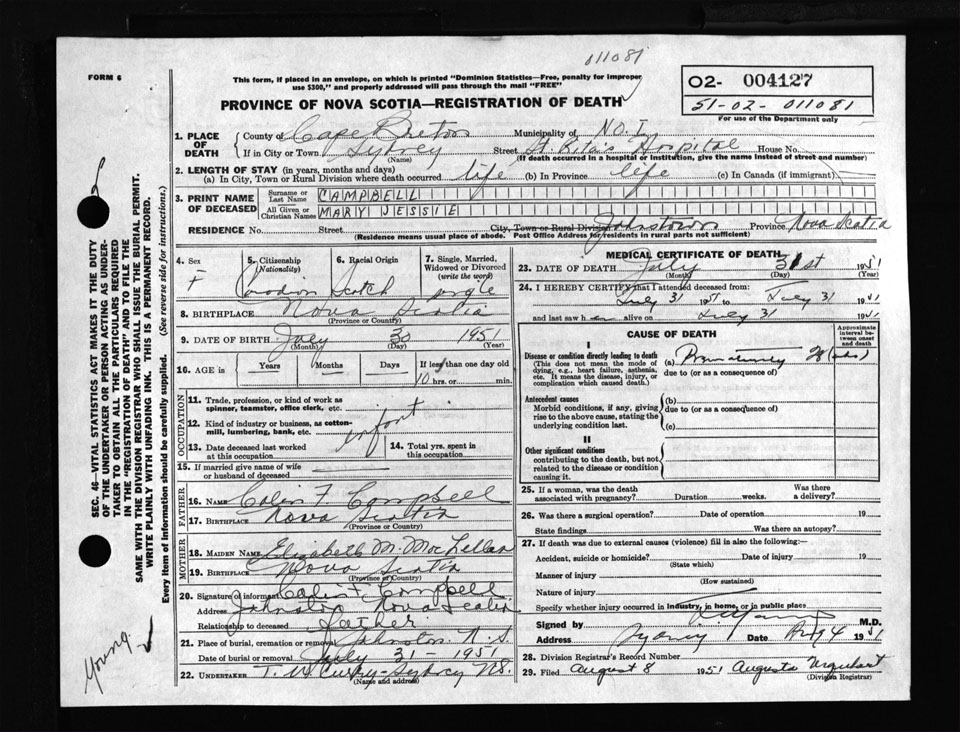 011081
FORM 6
This form, if placed in an envelope, on which is printed "Dominion Statistics—Free, penalty for improper
use $300," and properly addressed will pass through the mail "FREE"
O2- 004127
51-02-011081
For use of the Department only
PROVINCE OF NOVA SCOTIA—REGISTRATION OF DEATH
1. PLACE OF DEATH { County of Cape Breton Municipality of NO. 1
If in City or Town Sydney (Name) Street St. Rita's Hospital House No.
(If death occurred in a hospital or institution, give the name instead of street and number)
2. LENGTH OF STAY (in years, months and days)
(a) In City, Town or Rural Division where death occurred life (b) In Province life (c) In Canada (if immigrant)
3. PRINT NAME OF DECEASED { Surname or Last Name CAMPBELL
All Given or Christian Names MARY JESSIE
RESIDENCE No. Street City, Town or Rural Division Johnstown Province Nova Scotia
(Residence means usual place of abode. Post Office Address for residents in rural parts not sufficient)
4. Sex F
5. Citizenship (Nationality) Canadian
6. Racial Origin Scotch
7. Single, Married, Widowed or Divorced (write the word) single
8. BIRTHPLACE Nova Scotia
(Province or Country)
9. DATE OF BIRTH July 30 1951
(Month) (Day) (Year)
10. AGE { Years Months Days If less than one day old
10 hrs. or min.
OCCUPATION
11. Trade, profession or kind of work as
spinner, teamster, office clerk, etc.
12. Kind of industry or business, as cotton-
mill, lumbering, bank, etc. infant
13. Date deceased last worked
at this occupation
14. Total yrs. spent in
this occupation
15. If married give name of wife
or husband of deceased
FATHER
16. NAME Colin F. Campbell
17. BIRTHPLACE Nova Scotia
(Province or Country)
MOTHER
18. MAIDEN NAME Elizabeth M. MacLellan
19. BIRTHPLACE Nova Scotia
(Province or Country)
20. Signature of informant Colin F. Campbell
Address Johnston Nova Scotia
Relationship to deceased father
21. Place of burial, cremation or removal Johnston N.S.
Date of burial or removal July 31-1951
22. UNDERTAKER T. W. Curry-Sydney NS.
(Name and address)
MEDICAL CERTIFICATE OF DEATH
23. DATE OF DEATH July 31st 1951
(Month) (Day) (Year)
24. I HEREBY CERTIFY that I attended deceased from:
July 31 1951 to July 31 1951
and last saw her alive on July 31 1951
CAUSE OF DEATH
Approximate interval between onset and death
I
Disease or condition directly leading to death
(This does not mean the mode of
dying, e.g., heart failure, asthenia,
etc. It means the disease, injury, or
complication which caused death.)
(a)
due to (or as a consequence of)
Antecedent causes
Morbid conditions, if any, giving
rise to the above cause, stating the
underlying condition last.
(b)
due to (or as a consequence of)
(c)
II
Other significant conditions
contributing to the death, but not
related to the disease or condition
causing it.
25. If a woman, was the death
associated with pregnancy? Duration weeks. Was there
a delivery?
26. Was there a surgical operation? Date of operation 19
State findings Was there an autopsy?
27. If death was due to external causes (violence) fill in also the following:—
Accident, suicide or homicide? Date of injury 19
(State which)
Manner of injury
(How sustained)
Nature of injury
Specify whether injury occurred in industry, in home, or in public place
Signed by M.D.
Address Sydney Date Aug 4 1951
28. Division Registrar's Record Number
29. Filed August 8 1951 Augusta Urquhart
(Division Registrar)
SEC. 46—VITAL STATISTICS ACT MAKES IT THE DUTY
OF THE UNDERTAKER OR PERSON ACTING AS UNDER-
TAKER TO OBTAIN ALL THE PARTICULARS REQUIRED
IN THE "REGISTRATION OF DEATH" AND TO FILE THE
SAME WITH THE DIVISION REGISTRAR WHO SHALL ISSUE THE BURIAL PERMIT.
WRITE PLAINLY WITH UNFADING INK. THIS IS A PERMANENT RECORD.
Every item of information should be carefully supplied. (See reverse side for instructions.)
Young.